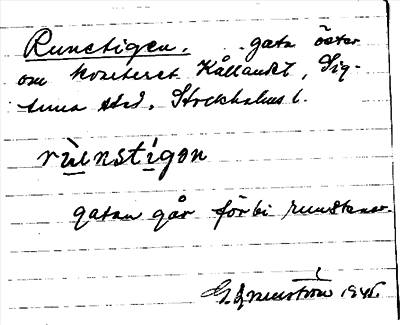 Runstigen. gata öster
om kvarteret Kållandet, Sig-
tuna stad, Stockholms l.
rùenstígen
gatan går förbi runstenar.
1945